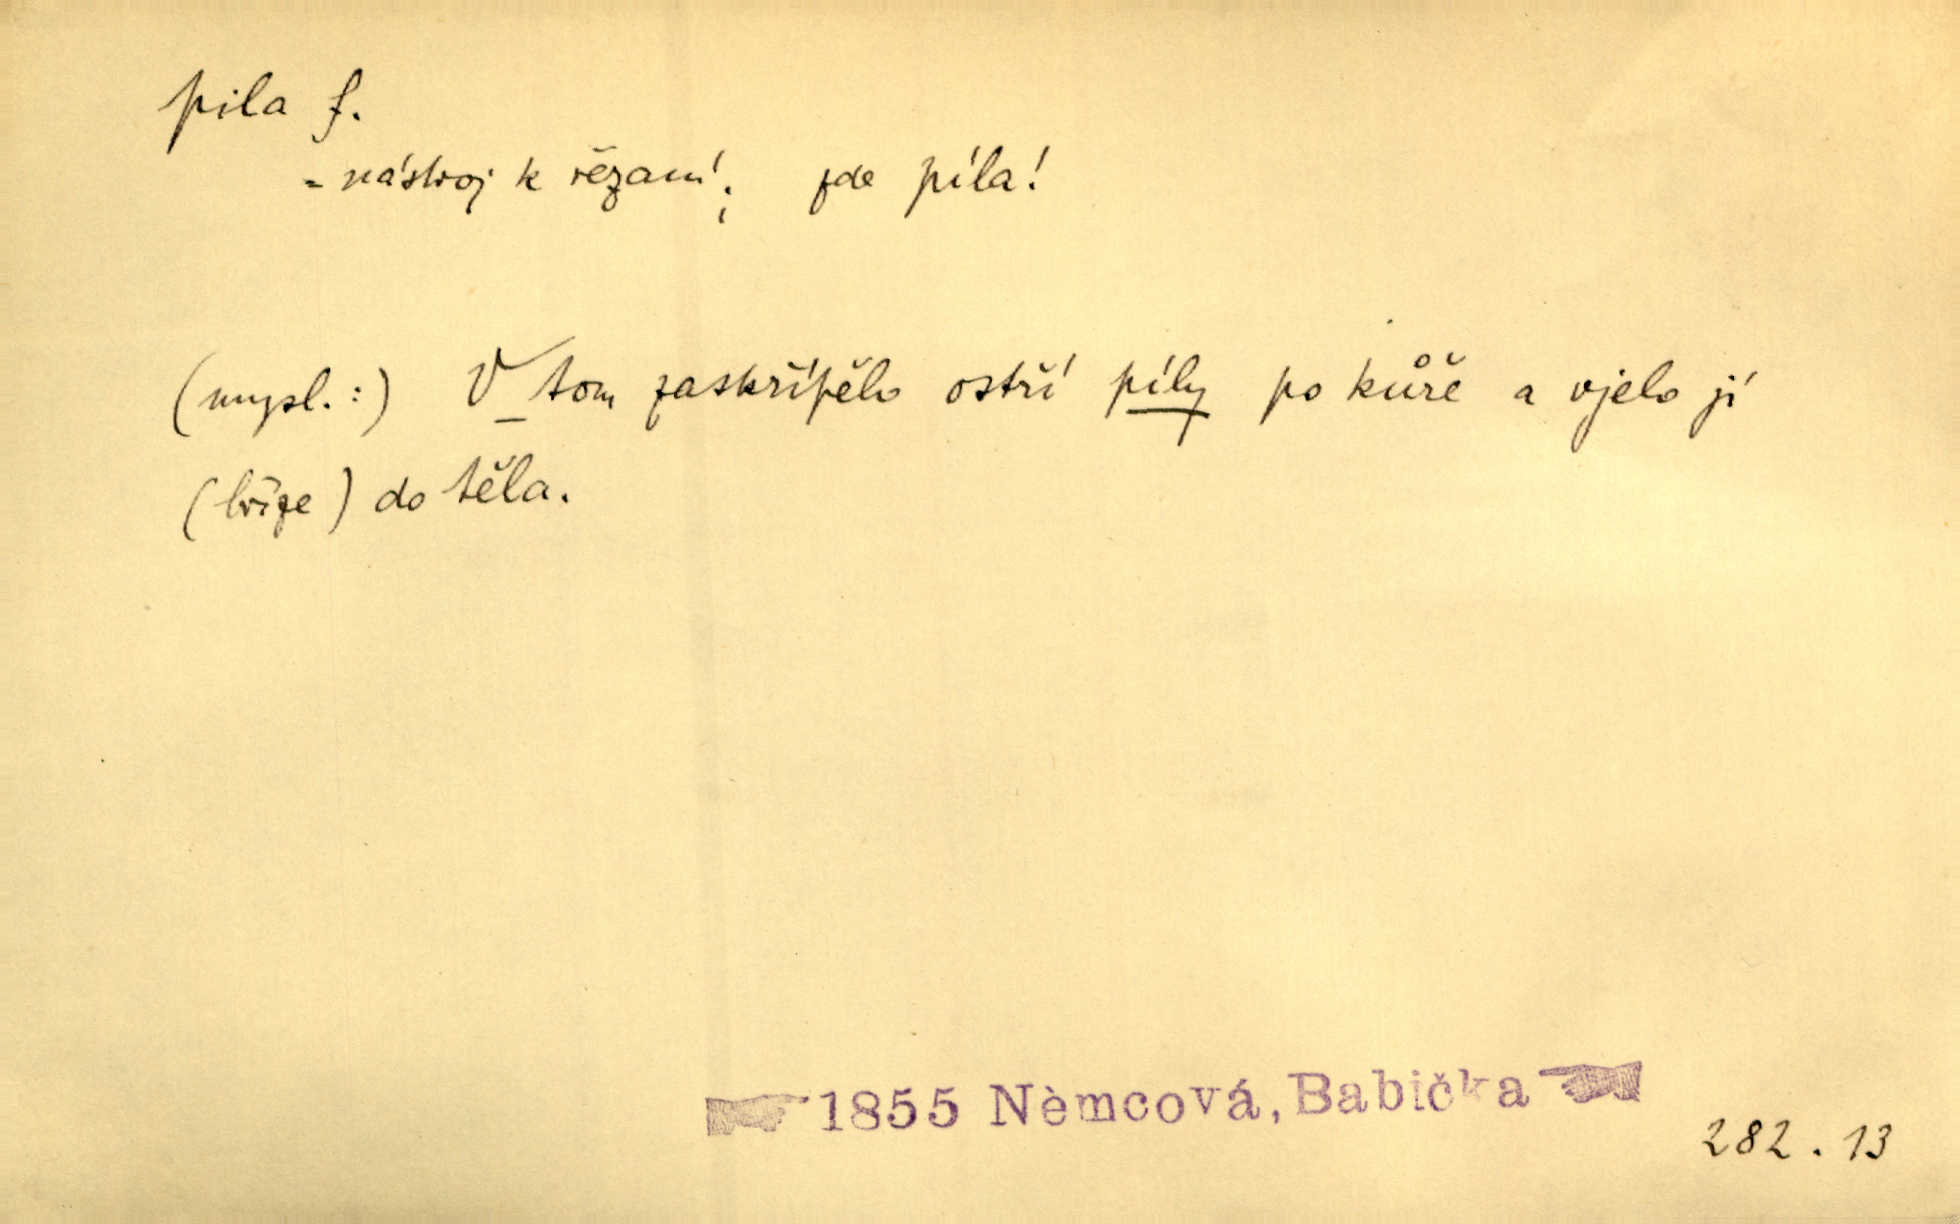 pila f.
= nástroj k řezání; zde píla!
(mysl.:) V tom zaskřípělo ostří píly po kůře a vjelo jí
(bříze) do těla.
1855 Němcová, Babička
282.13